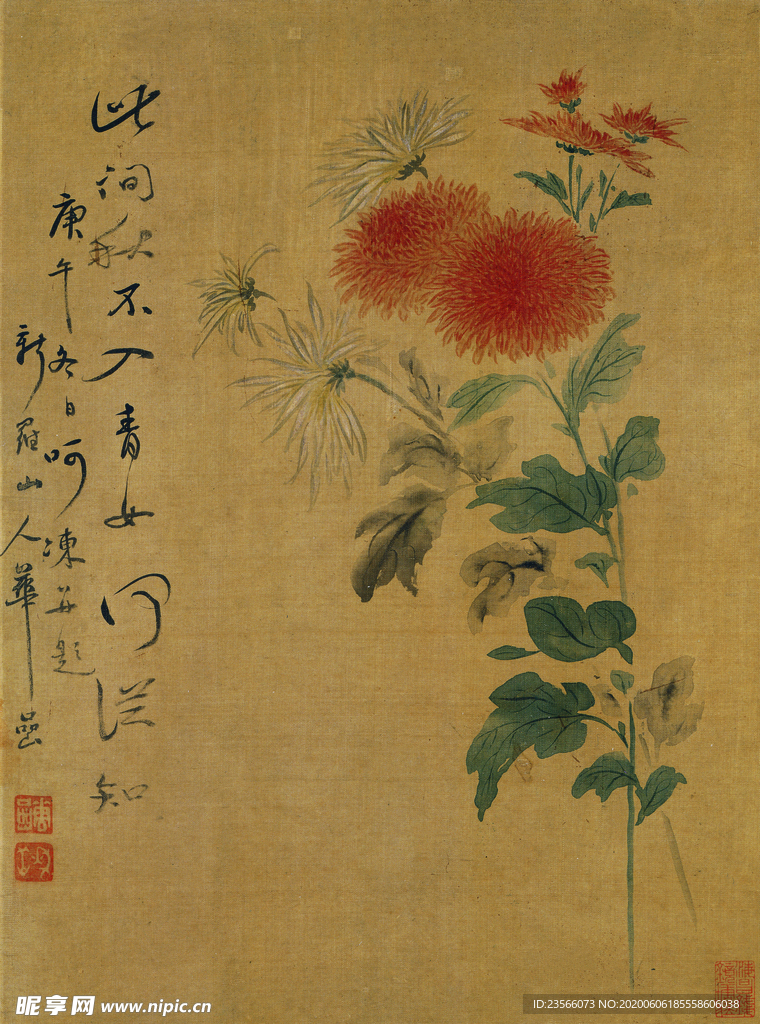 此间秋不入青女何从知
庚午冬日呵冻并题
新罗山人华喦
昵享网 www.nipic.cn
ID:23566073 NO:20200606185558606038